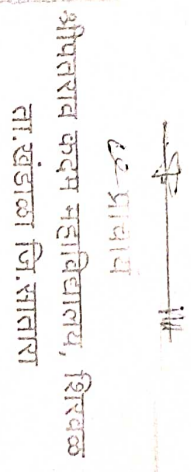 प्राचार्य
श्रीपतराव कदम महाविद्यालय, शिरवळ
ता.खंडाळा जि.सातारा